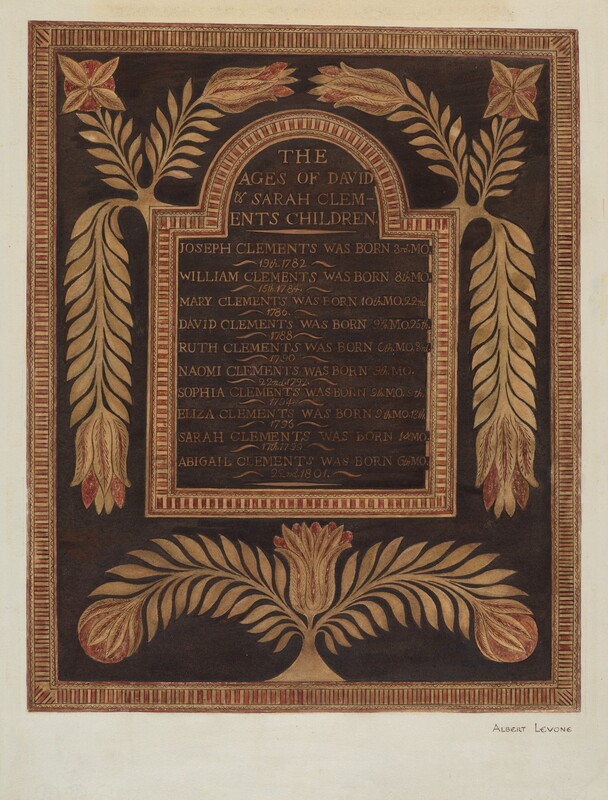 THE
AGES OF DAVID
& SARAH CLEM-
ENTS CHILDREN.
JOSEPH CLEMENTS WAS BORN 3rd MO.
19th. 1782
WILLIAM CLEMENTS WAS BORN 8th MO.
15th. 1784
MARY CLEMENTS WAS BORN 10th MO. 22nd
1786
DAVID CLEMENTS WAS BORN MO. 25th
1788
RUTH CLEMENTS WAS BORN 6th MO.
1790
NAOMI CLEMENTS WAS BORN MO.
22nd 1792
SOPHIA CLEMENTS WAS BORN MO.
ELIZA CLEMENTS WAS BORN 9th MO.
1796
SARAH CLEMENTS WAS BORN 1st MO.
17th
ABIGAIL CLEMENTS WAS BORN 6th MO.
1801.
ALBERT LEVONE